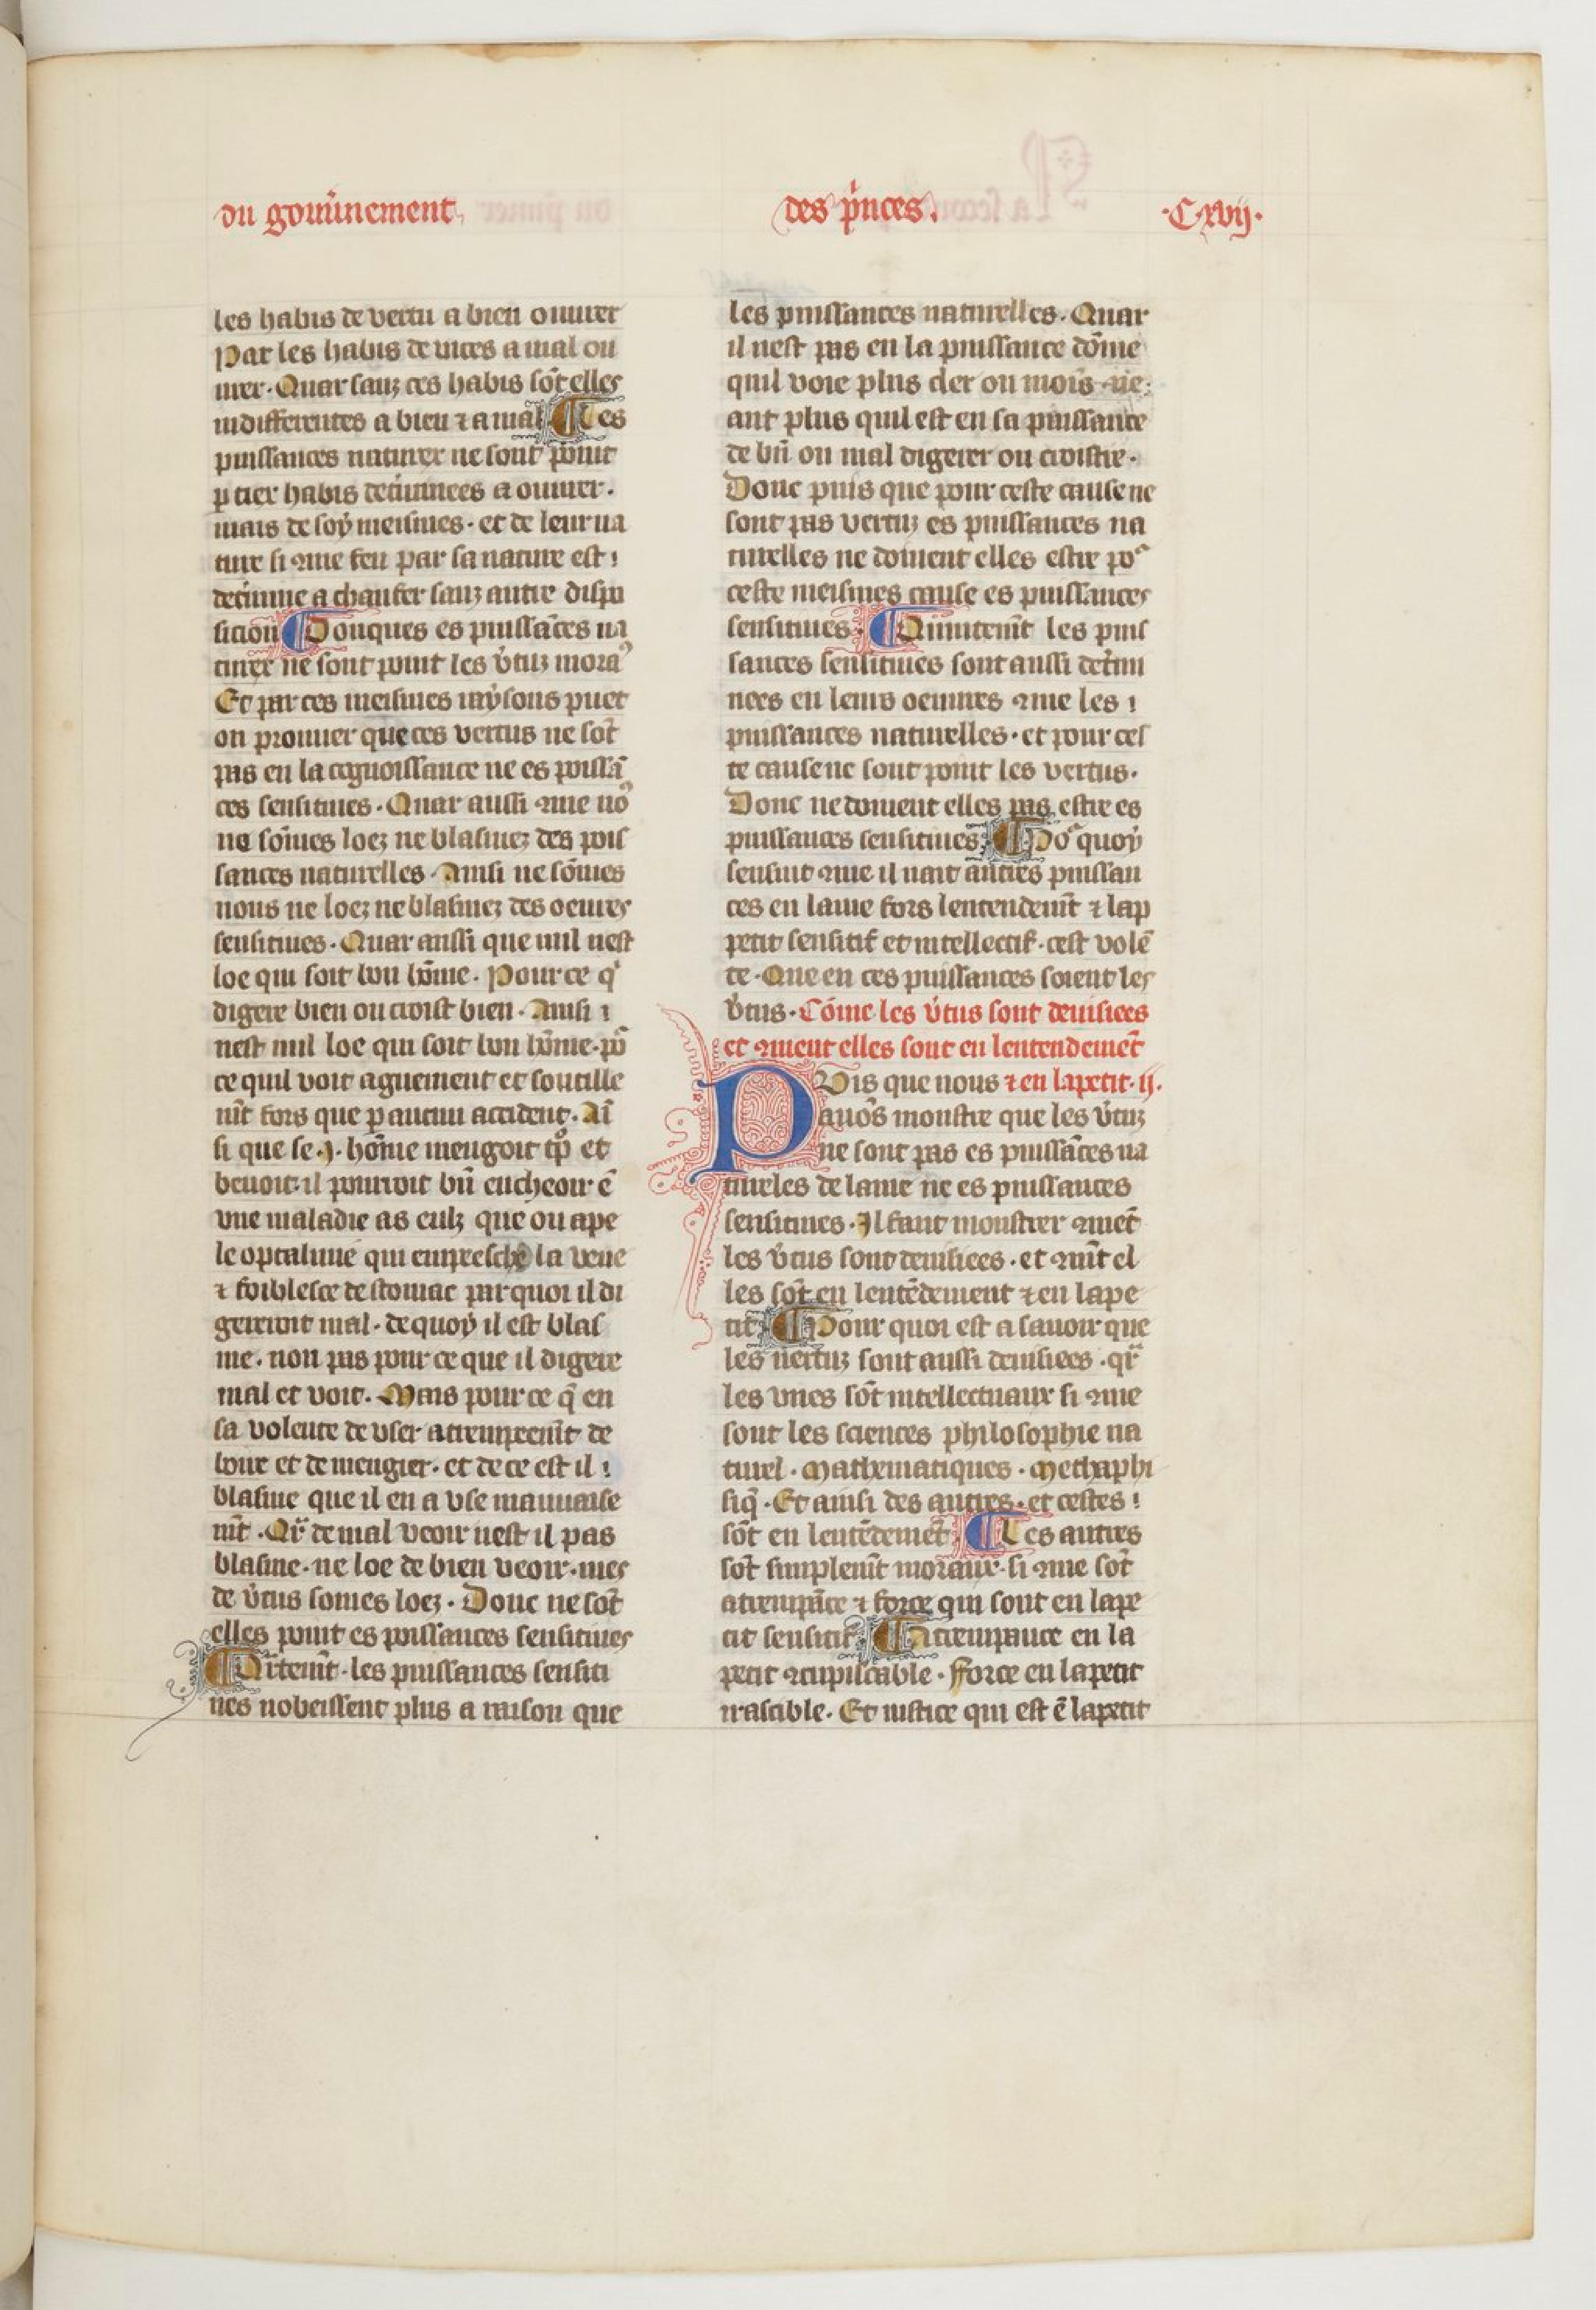 du gouu̾nement
des p̾nces.
.C.xvij.
les habis de vertu a bien ouurer
Par les habis de vices a mal ou
urer. Quar sanz ces habis sōt elles
indifferentes a bien ⁊ a mal ¶ Les
puissances naturex ne sont point
p tiex habis det̾minees a ouurer.
mais de soy meismes. et de leur na
ture si ꝯme feu par sa nature est
det̾mine a chaufer sanz autre dispo
sicion ¶ Donques es puissāces na
turex ne sont point les v̾tuz moraˣ
Et par ces meismes raysons puet
on prouuer que ces vertus ne sōt
pas en la cognoissance ne es poissā
ces sensitiues. Quar aussi ꝯme noˀ
ne sōmes loez ne blasmez des pois
sances naturelles. Ainsi ne sōmes
nous ne loez ne blasmez des oeures
sensitiues. Quar aussi que nul nest
loe qui soit bon hōme. Pour ce qͥ
digere bien ou croist bien. Ainsi
nest nul loe qui soit bon hōme. poͬ
ce quil voit aguement et soutille
mēt fors que p aucun accident. Aī
si que se .j. hōme mengoit tͦp et
beuoit. il pourroit bn̄ encheoir ē
vne maladie as eulz que on ape
le optalmie qui empesche la veue
⁊ foiblesce destomac par quoi il di
gereroit mal. de quoy il est blas
me. non pas pour ce que il digere
mal et voit. Mais pour ce q̄ en
sa volente de vser atrempeem̄t de
boire et de mengier. et de ce est il
blasme que il en a vse mauuaise
mēt. Qͬ de mal veoir nest il pas
blasme. ne loe de bien veoir. mes
de v̾tus somes loez. Donc ne sōt
elles point es poissances sensitiues
¶ Aut̾em̄t. les puissances sensiti
ues nobeissent plus a raison que
les puissances naturelles. Quar
il nest pas en la puissance dōme
quil voie plus cler ou moīs. ne
ant plus quil est en sa puissance
de bn̄ ou mal digerer ou croistre.
Donc puis que pour ceste cause ne
sont pas vertuz es puissances na
turelles ne doiuent elles estre poͬ
ceste meismes cause es puissances
sensitiues. ¶ Autrem̄t les puis
sances sensitiues sont aussi det̾mi
nees en leurs oeuures ꝯme les
puissances naturelles. et pour ces
te cause ne sont point les vertus.
Donc ne doiuent elles pas estre es
puissances sensitiues ¶ Poͬ quoy
sensuit ꝯme il nait autres puissan
ces en lame fors lentendem̄t ⁊ lap
petit sensitif et intellectif. cest volē
te. Que en ces puissances soient les
v̾tus. Cōme les v̾tus sont deuisees
et ꝯment elles sont en lentendemēt
Puis que nous ⁊ en lapetit. ij.
auōs monstre que les v̾tuz
ne sont pas es puissāces na
tureles de lame ne es puissances
sensitiues. Il faut monstrer ꝯmēt
les v̾tus sont deuisees. et ꝯmēt el
les sōt en lentēdement ⁊ en lape
tit ¶ Pour quoi est a sauoir que
les vertuz sont aussi deuisees. qͬ
les vnes sōt intellectuaux si ꝯme
sont les sciences philosophie na
turel. Mathematiques. Methaphi
siq̄. Et ainsi des autres. et cestes
sōt en lentēdemēt ¶ Les autres
sōt simplem̄t moraux. si ꝯme sōt
atrempāce ⁊ force qui sont en lape
tit sensitif. ¶ Atrempance en la
petit ꝯcupiscable. Force en lapetit
irascible. Et iustice qui est ē lapetit